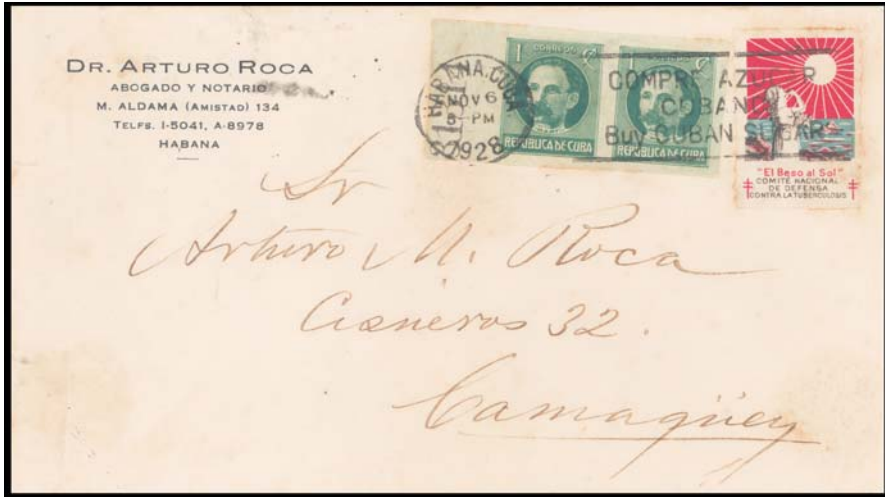 DR. ARTURO ROCA
ABOGADO Y NOTARIO
M. ALDAMA (AMISTAD) 134
TELFS. I-5041, A-8978
HABANA
HABANA, CUBA
NOV 6
5-PM
1928
1 CORREOS
REPUBLICA DE CUBA
1
REPUBLICA DE CUBA
COMPRE AZUCAR
CUBANO
BUY CUBAN SUGAR
"El Beso al Sol"
COMITÉ NACIONAL
DE DEFENSA
CONTRA LA TUBERCULOSIS
Sr
Arturo M. Roca
Cisneros 32.
Camagüey